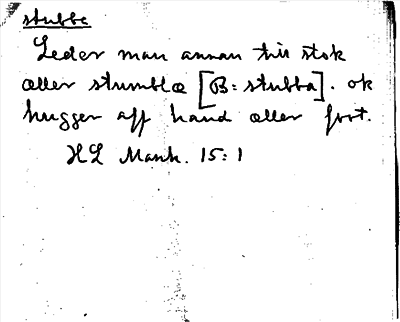 stubbe
Leder man annan till stok
æller stumblæ [B: stubba]. ok
hugger aff hand æller foot.
HL Manh. 15:1